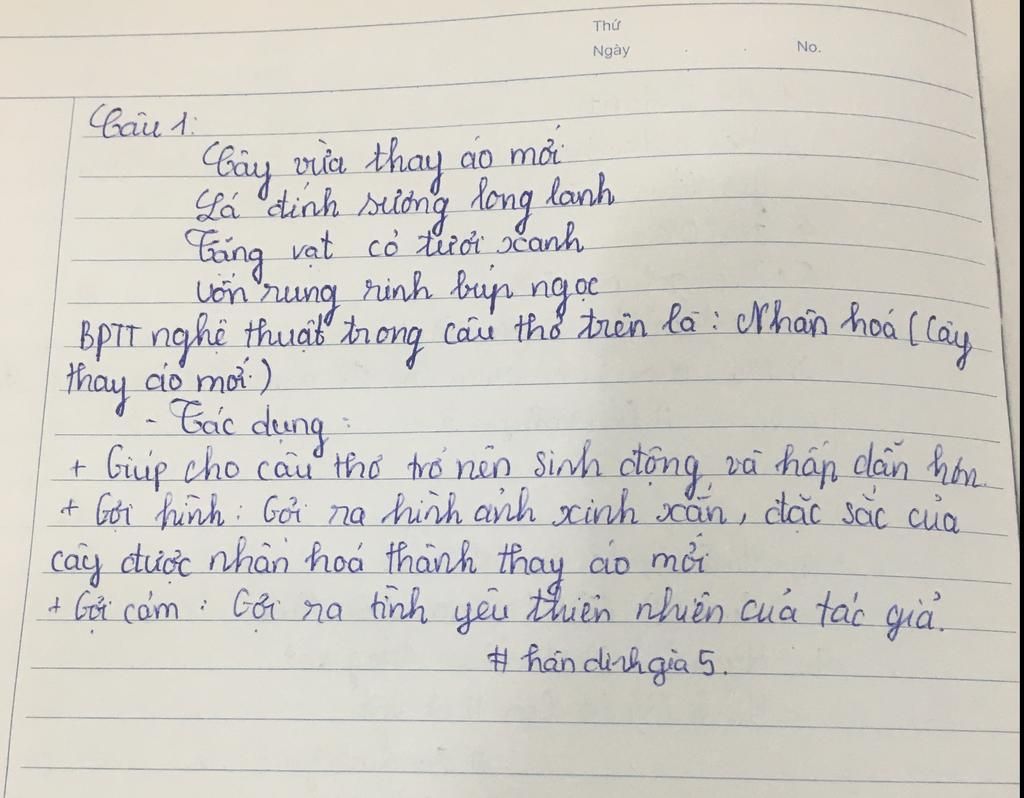 Thứ
Ngày . . No.
Câu 1:
Cây vừa thay áo mới
Lá đính sương long lanh
Tảng vạt cỏ tươi xanh
Vốn rung rinh búp ngọc
BPTT nghệ thuật trong câu thơ trên là: Nhân hoá (Cây
thay áo mới)
- Tác dụng:
+ Giúp cho câu thơ trở nên sinh động và hấp dẫn hơn.
+ Gợi hình: Gợi ra hình ảnh xinh xắn, đặc sắc của
cây được nhân hoá thành thay áo mới
+ Gợi cảm: Gợi ra tình yêu thiên nhiên của tác giả.
# handinhgia5.